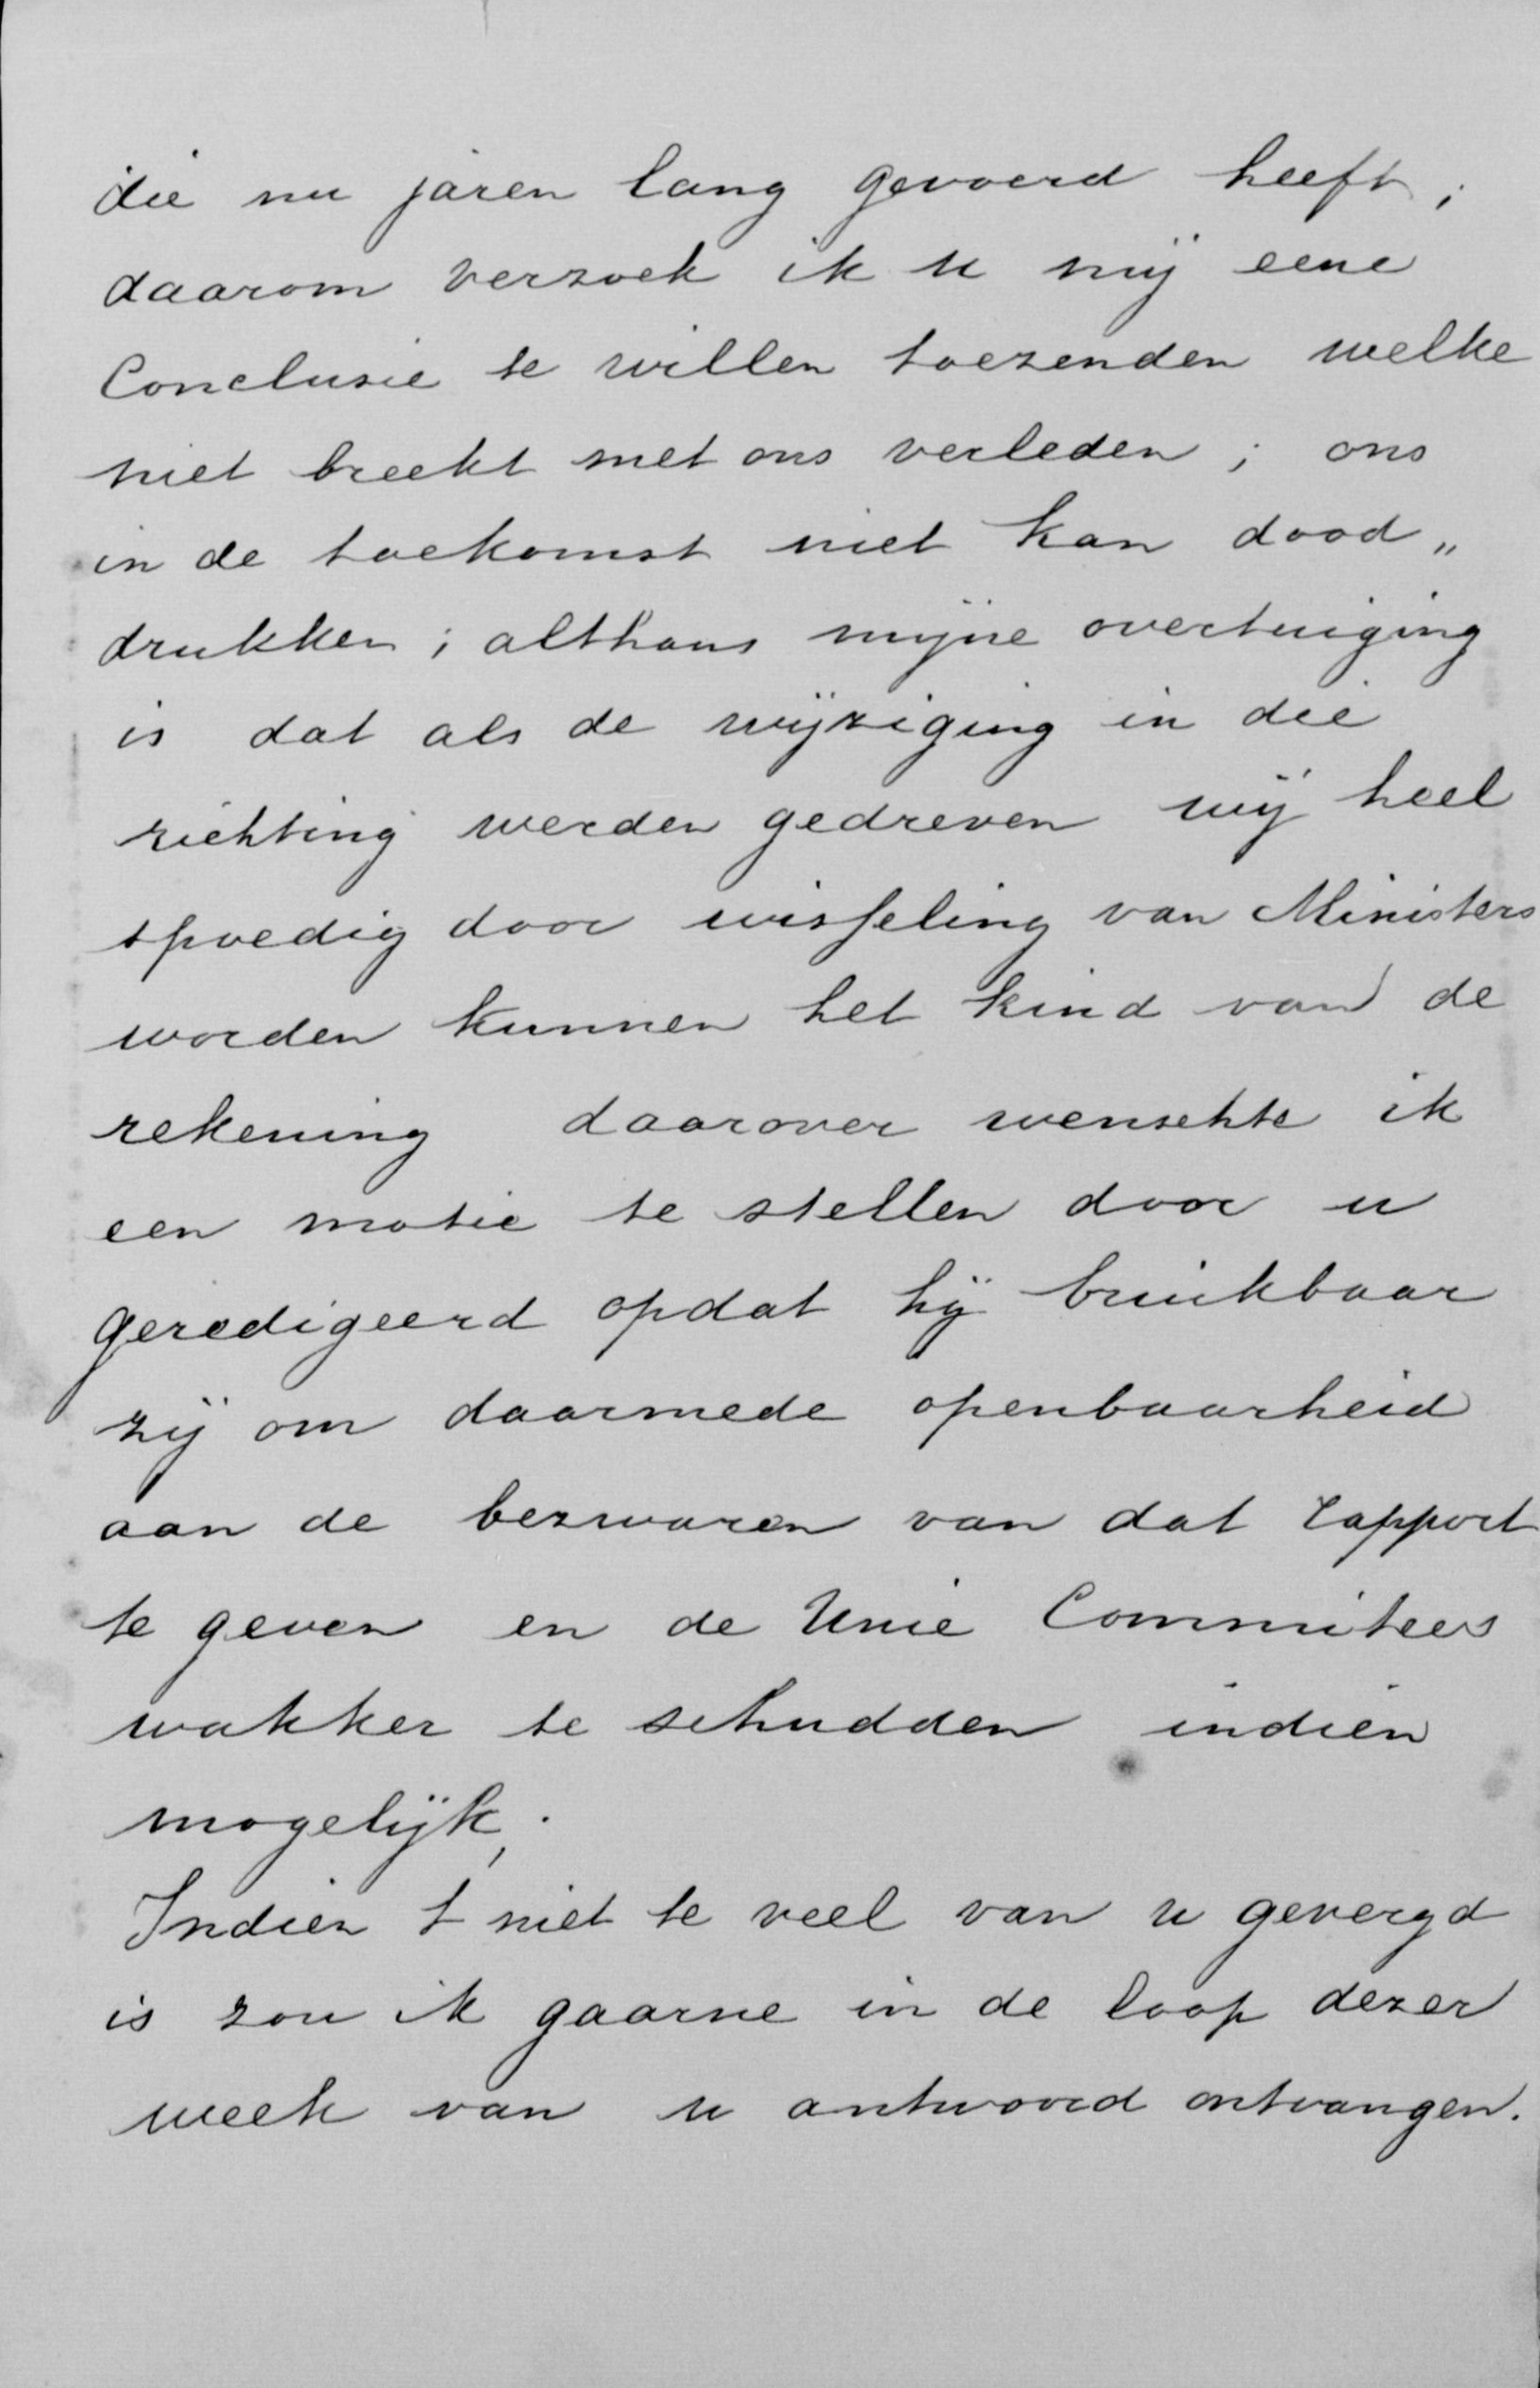 die nu jaren lang gevoerd heeft;
daarom verzoek ik u mij eene
Conclusie te willen toezenden welke
niet breekt met ons verleden; ons
in de toekomst niet kan dood„
drukken; althans mijne overtuiging
is dat als de wijziging in die
richting werden gedreven wij heel
spoedig door wisseling van Ministers
worden kunnen het kind van de
rekening daarover wenschte ik
een motie te stellen door u
geredigeerd opdat hij bruikbaar
zij om daarmede openbaarheid
aan de bezwaren van dat rapport
te geven en de Unie Commitees
wakker te schudden indien
mogelijk;
Indien t niet te veel van u gevergd
is zou ik gaarne in de loop dezer
week van u antwoord ontvangen.